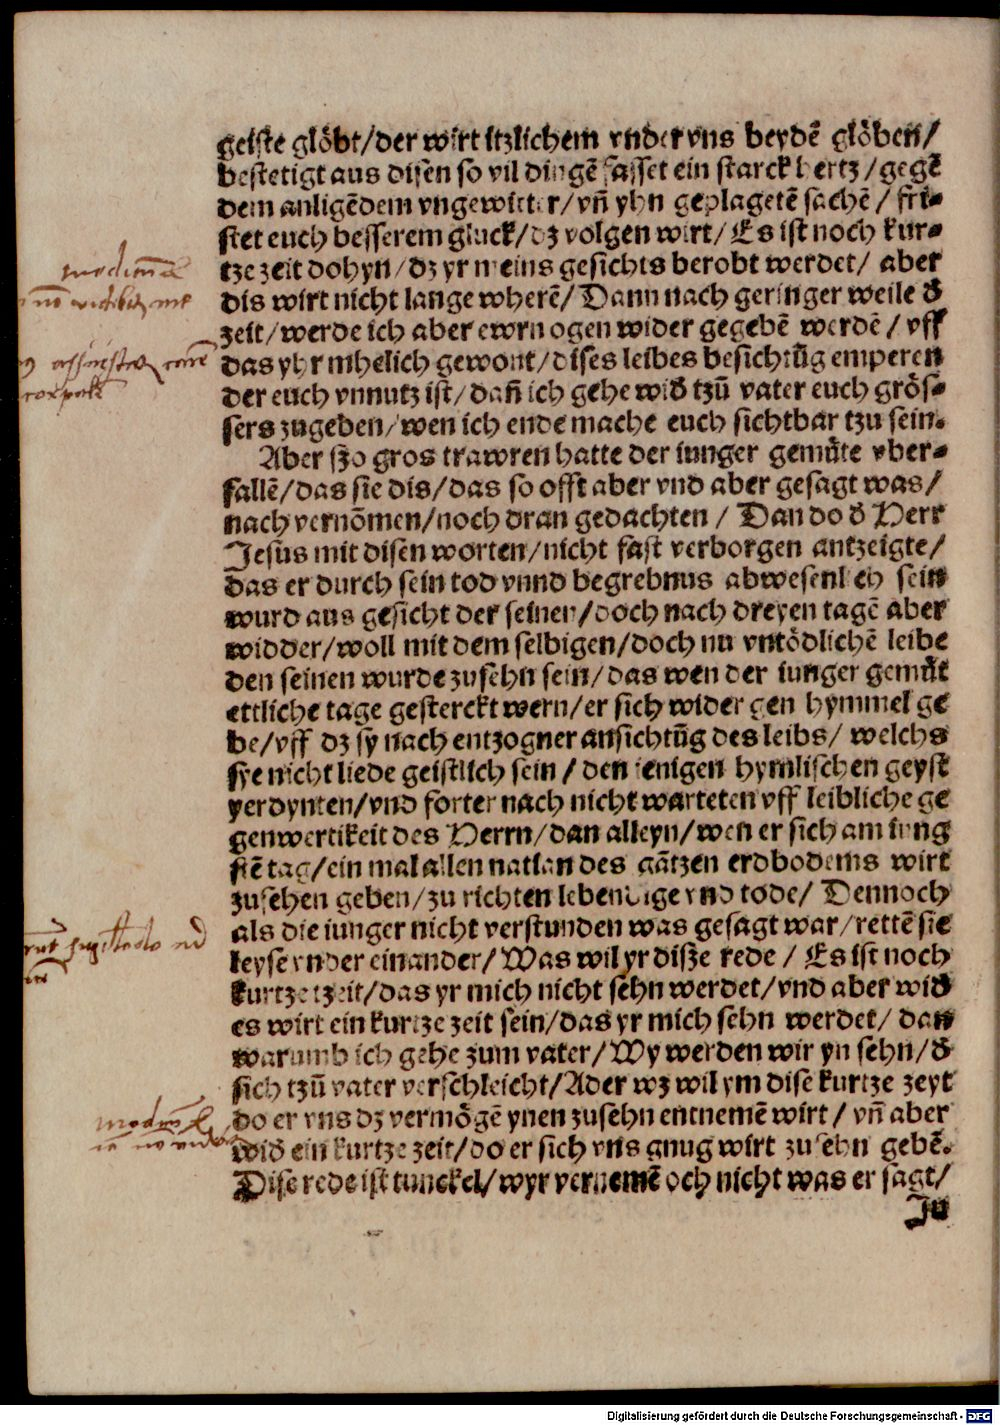 geiste glöbt/der wirt itzlichem vnder vns beydē glöben/
bestetigt aus disen so vil dingē fasset ein starck hertz/gegē
dem anligēdem vngewitter/vn̄ yhn geplagetē sachē/fri⸗
stet euch besserem gluck/dz volgen wirt/Es ist noch kur⸗
tze zeit dohyn/dz yr meins gesichts berobt werdet/ aber
dis wirt nicht lange wherē/Dann nach geringer weile d̄
zeit/werde ich aber ewrn ogen wider gegebē werdē/vff
das yhr mhelich gewont/dises leibes besichtūg emperen
der euch vnnutz ist/dan̄ ich gehe wid̄ tzū vater euch grös⸗
sers zugeben/wen ich ende mache euch sichtbar tzu sein.
Aber szo gros trawren hatte der iunger gemüte vber⸗
fallē/das sie dis/das so offt aber vnd aber gesagt was/
nach vernōmen/noch dran gedachten/ Dan do d̄ Herr
Jesus mit disen worten/nicht fast verborgen antzeigte/
das er durch sein tod vnnd begrebnus abwesenlich sein
wurd aus gesicht der seinen/doch nach dreyen tagē aber
widder/woll mit dem selbigen/doch nu vntödlichē leibe
den seinen wurde zusehn sein/das wen der iunger gemüt
ettliche tage gesterckt wern/er sich wider gen hymmel ge
be/vff dz sy nach entzogner ansichtūg des leibs/ welchs
sye nicht liede geistlich sein/den ienigen hymlischen geyst
verdynten/vnd forter nach nicht warteten vff leibliche ge
genwertikeit des Herrn/dan alleyn/wen er sich am iung
stē tag/ein mal allen natian des gātzen erdbodems wirt
zusehen geben/zu richten lebendige vnd tode/ Dennoch
als die iunger nicht verstunden was gesagt war/rettē sie
leyse vnder einander/Was wil yr disze rede/ Es ist noch
kurtze tzeit/das yr mich nicht sehn werdet/vnd aber wid̄
es wirt ein kurtze zeit sein/das yr mich sehn werdet/ dan
warumb ich gehe zum vater/Wy werden wir yn sehn/d̄
sich tzū vater verschleicht/Ader wz wil ym dise kurtze zeyt
do er vns dz vermögē ynen zusehn entnemē wirt/ vn̄ aber
wid̄ ein kurtze zeit/do er sich vns gnug wirt zu sehn gebē.
Dise rede ist tunckel/wyr vernemē och nicht was er sagt/
Ju
Digitalisierung gefördert durch die Deutsche Forschungsgemeinschaft - DFG